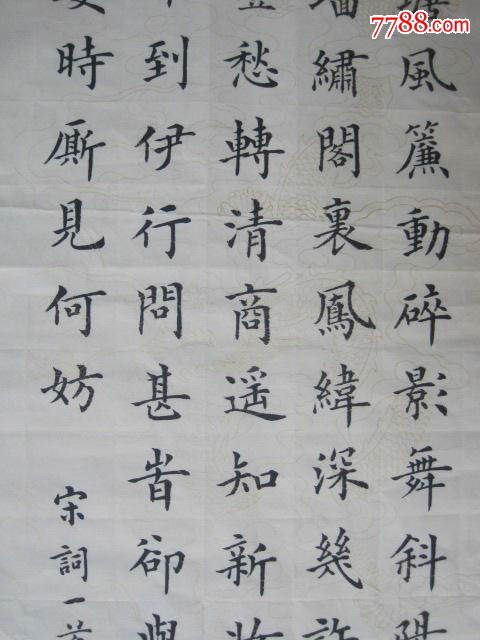 7788.com
塘風簾動碎影舞斜陽
牆繡閣裏鳳緯深幾許
愁轉清商遥知新妝
到伊行問甚旹卻與
時厮見何妨
宋詞一首